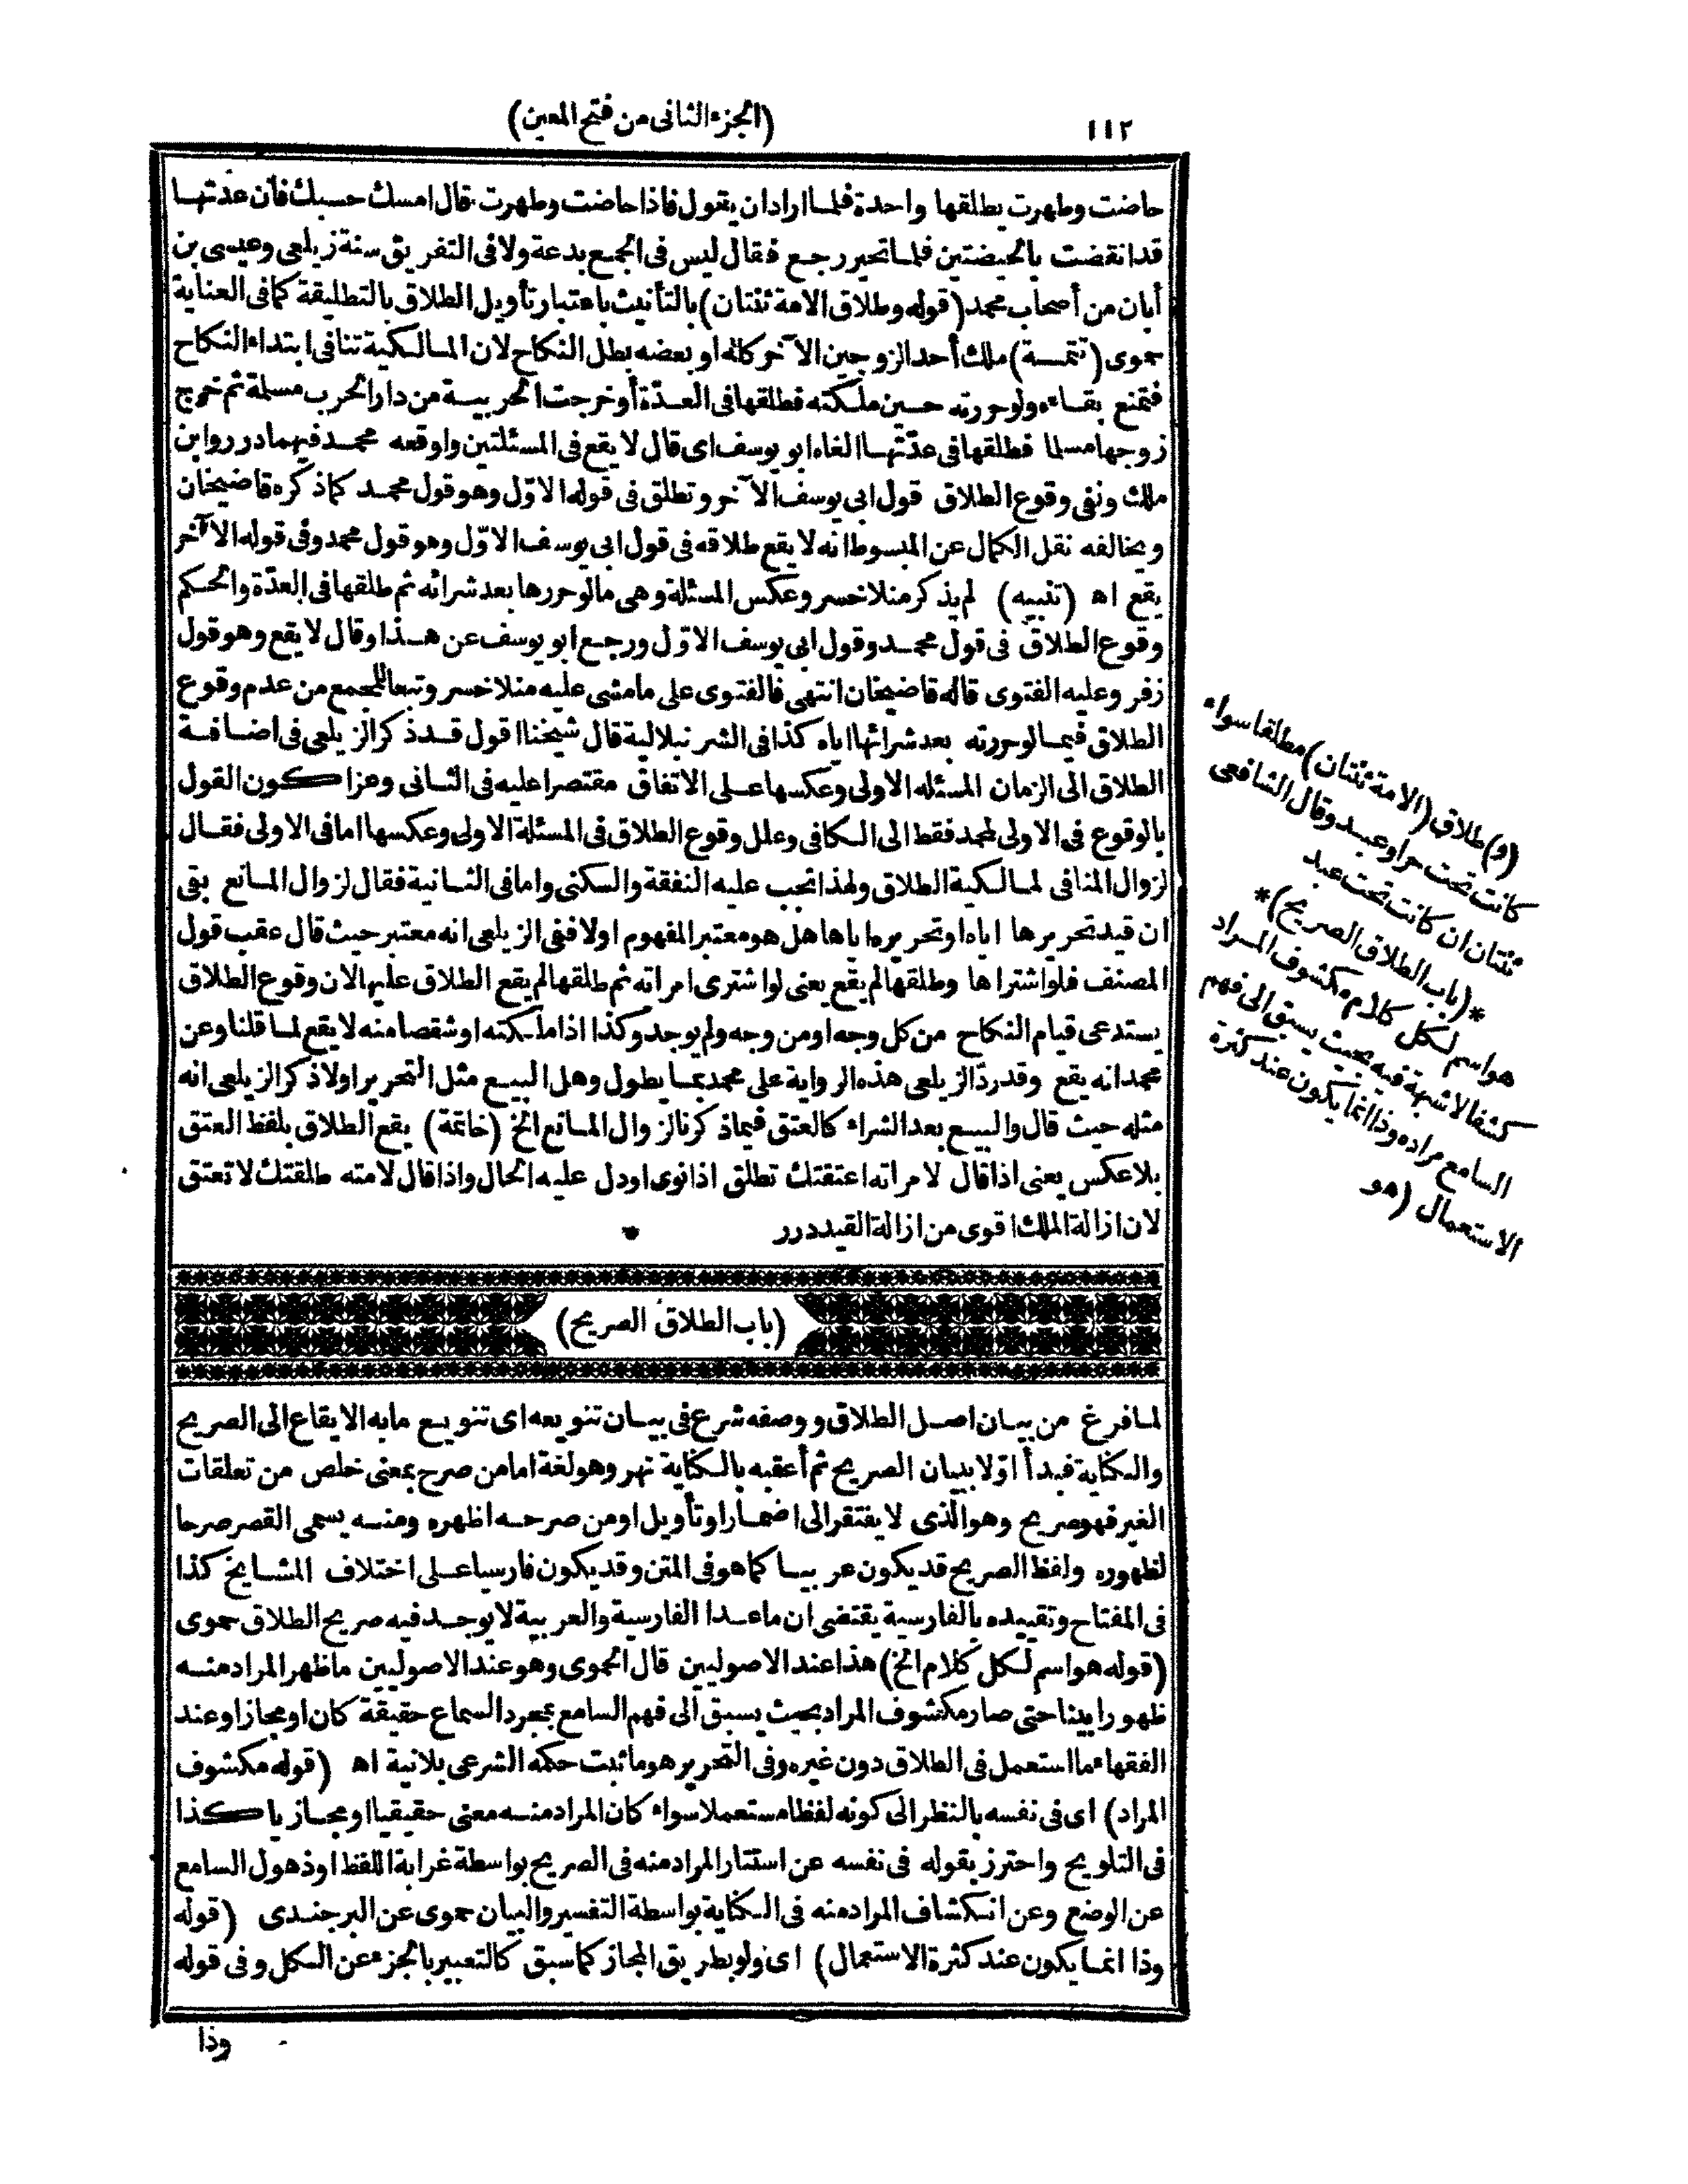 ١١٢
(الجزء الثانى من فتح المعين)
حاضت وطهرت يطلقها واحدة فلما اراد ان يقول فاذا حاضت وطهرت قال امسك حسبك فان عدتها
قد انقضت بالحيضتين فلما تحير رجع فقال ليس فى الجمع بدعة ولا فى التفريق سنة زيلعى وعيسى بن
أبان من أصحاب محمد (قوله وطلاق الامة ثنتان) بالتأنيث باعتبار تأويل الطلاق بالتطليقة كما فى العناية
حموى (تتمسة) ملك أحد الزوجين الآخر كله او بعضه بطل النكاح لان المالكية تنافى ابتداء النكاح
فتمنع بقاءه ولو حررته حين ملكته فطلقها فى العدّة أو خرجت الحربية من دار الحرب مسلمة ثم خرج
زوجها مسلما فطلقها فى عدّتها الغاه ابو يوسف اى قال لا يقع فى المسئلتين واوقعه محمد فيهما درر وابن
ملك ونفى وقوع الطلاق قول ابى يوسف الآخر وتطلق فى قوله الاوّل وهو قول محمد كما ذكره قاضيخان
ويخالفه نقل الكمال عن المبسوط انه لا يقع طلاقه فى قول ابى يوسف الاوّل وهو قول محمد وفى قوله الآخر
يقع اه (تنبيه) لم يذكر منلا خسرو عكس المسئلة وهى ما لو حررها بعد شرائه ثم طلقها فى العدّة والحكم
وقوع الطلاق فى قول محمد وقول ابى يوسف الاوّل ورجع ابو يوسف عن هذا وقال لا يقع وهو قول
زفر وعليه الفتوى قاله قاضيخان انتهى فالفتوى على ما مشى عليه منلا خسرو تبعا للمجمع من عدم وقوع
الطلاق فيما لو حررته بعد شرائها اياه كذا فى الشرنبلالية قال شيخنا اقول قد ذكر الزيلعى فى اضافة
الطلاق الى الزمان المسئله الاولى وعكسها على الاتفاق مقتصرا عليه فى الثانى وعزا كون القول
بالوقوع فى الاولى لمحمد فقط الى الكافى وعلل وقوع الطلاق فى المسئلة الاولى وعكسها اما فى الاولى فقال
لزوال المنافى لمالكية الطلاق ولهذا تجب عليه النفقة والسكنى واما فى الثانية فقال لزوال المانع بقى
ان قيد تحريرها اياه او تحريره اياها هل هو معتبر المفهوم او لا ففى الزيلعى انه معتبر حيث قال عقب قول
المصنف فلو اشتراها وطلقها لم يقع يعنى لو اشترى امراته ثم طلقها لم يقع الطلاق عليها لان وقوع الطلاق
يستدعى قيام النكاح من كل وجه او من وجه ولم يوجد وكذا اذا ملكته او شقصا منه لا يقع لما قلنا وعن
محمد انه يقع وقد ردّ الزيلعى هذه الرواية على محمد بما يطول وهل البيع مثل التحرير اولا ذكر الزيلعى انه
مثله حيث قال والبيع بعد الشراء كالعتق فيما ذكرنا لزوال المانع الخ (خاتمة) يقع الطلاق بلفظ العتق
بلا عكس يعنى اذا قال لامراته اعتقتك تطلق اذا نوى او دل عليه الحال واذا قال لامته طلقتك لا تعتق
لان ازالة الملك اقوى من ازالة القيد درر *
(باب الطلاق الصريح)
لما فرغ من بيان اصل الطلاق ووصفه شرع فى بيان تنويعه اى تنويع ما به الايقاع الى الصريح
والكناية فبدأ اوّلا ببيان الصريح ثم أعقبه بالكناية نهر وهو لغة اما من صرح بمعنى خلص من تعلقات
الغير فهو صريح وهو الذى لا يفتقر الى اضمار او تأويل او من صرحه اظهره ومنه يسمى القصر صرحا
لظهوره ولفظ الصريح قد يكون عربيا كما هو فى المتن وقد يكون فارسيا على اختلاف المشايخ كذا
فى المفتاح وتقييده بالفارسية يقتضى ان ما عدا الفارسية والعربية لا يوجد فيه صريح الطلاق حموى
(قوله هو اسم لكل كلام الخ) هذا عند الاصوليين قال الحموى وهو عند الاصوليين ما ظهر المراد منه
ظهورا بينا حتى صار مكشوف المراد بحيث يسبق الى فهم السامع بمجرد السماع حقيقة كان او مجازا وعند
الفقهاء ما استعمل فى الطلاق دون غيره وفى التحرير هو ما ثبت حكمه الشرعى بلا نية اه (قوله مكشوف
المراد) اى فى نفسه بالنظر الى كونه لفظا مستعملا سواء كان المراد منه معنى حقيقيا او مجازيا كذا
فى التلويح واحترز بقوله فى نفسه عن استتار المراد منه فى الصريح بواسطة غرابة اللفظ او ذهول السامع
عن الوضع وعن انكشاف المراد منه فى الكناية بواسطة التفسير والبيان حموى عن البرجندى (قوله
وذا انما يكون عند كثرة الاستعمال) اى ولو بطريق المجاز كما سبق كالتعبير بالجزء عن الكل وفى قوله
وذا
(و) طلاق (الامة ثنتان) مطلقا سواء
كانت تحت حر او عبد وقال الشافعى
ثنتان ان كانت تحت عبد
*(باب الطلاق الصريح)*
هو اسم لكل كلام مكشوف المراد
كشفا لا شبهة فيه بحيث يسبق الى فهم
السامع مراده وذا انما يكون عند كثرة
الاستعمال (هو